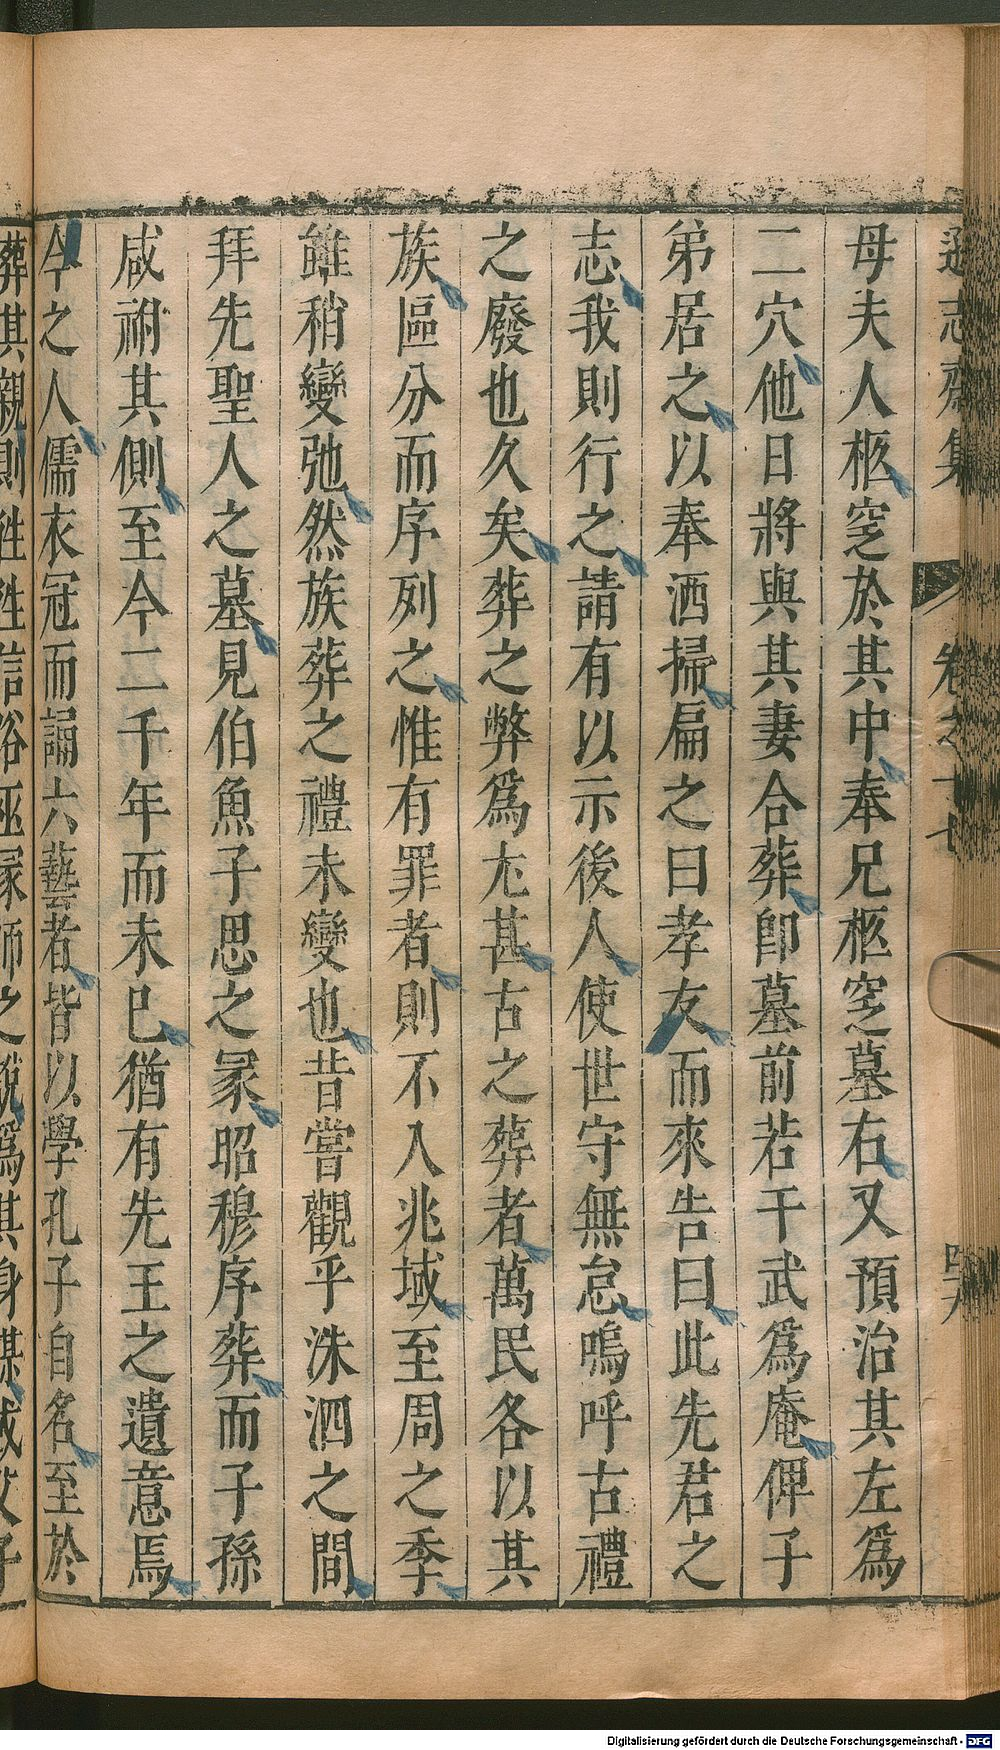 遜志齋集 卷之十七 四十八
母夫人柩窆於其中奉兄柩窆墓右又預治其左爲
二穴他日將與其妻合葬卽墓前若干武爲庵俾子
弟居之以奉洒掃扁之曰孝友而來告曰此先君之
志我則行之請有以示後人使世守無怠嗚呼古禮
之廢也久矣葬之弊爲尤甚古之葬者萬民各以其
族區分而序列之惟有罪者則不入兆域至周之季
雖稍變弛然族葬之禮未變也昔嘗觀乎洙泗之間
拜先聖人之墓見伯魚子思之冢昭穆序葬而子孫
咸祔其側至今二千年而未已猶有先王之遺意焉
今之人儒衣冠而誦六藝者皆以學孔子自名至於
葬其親則往往信俗巫冢師之說爲其身謀或父子
Digitalisierung gefördert durch die Deutsche Forschungsgemeinschaft - DFG